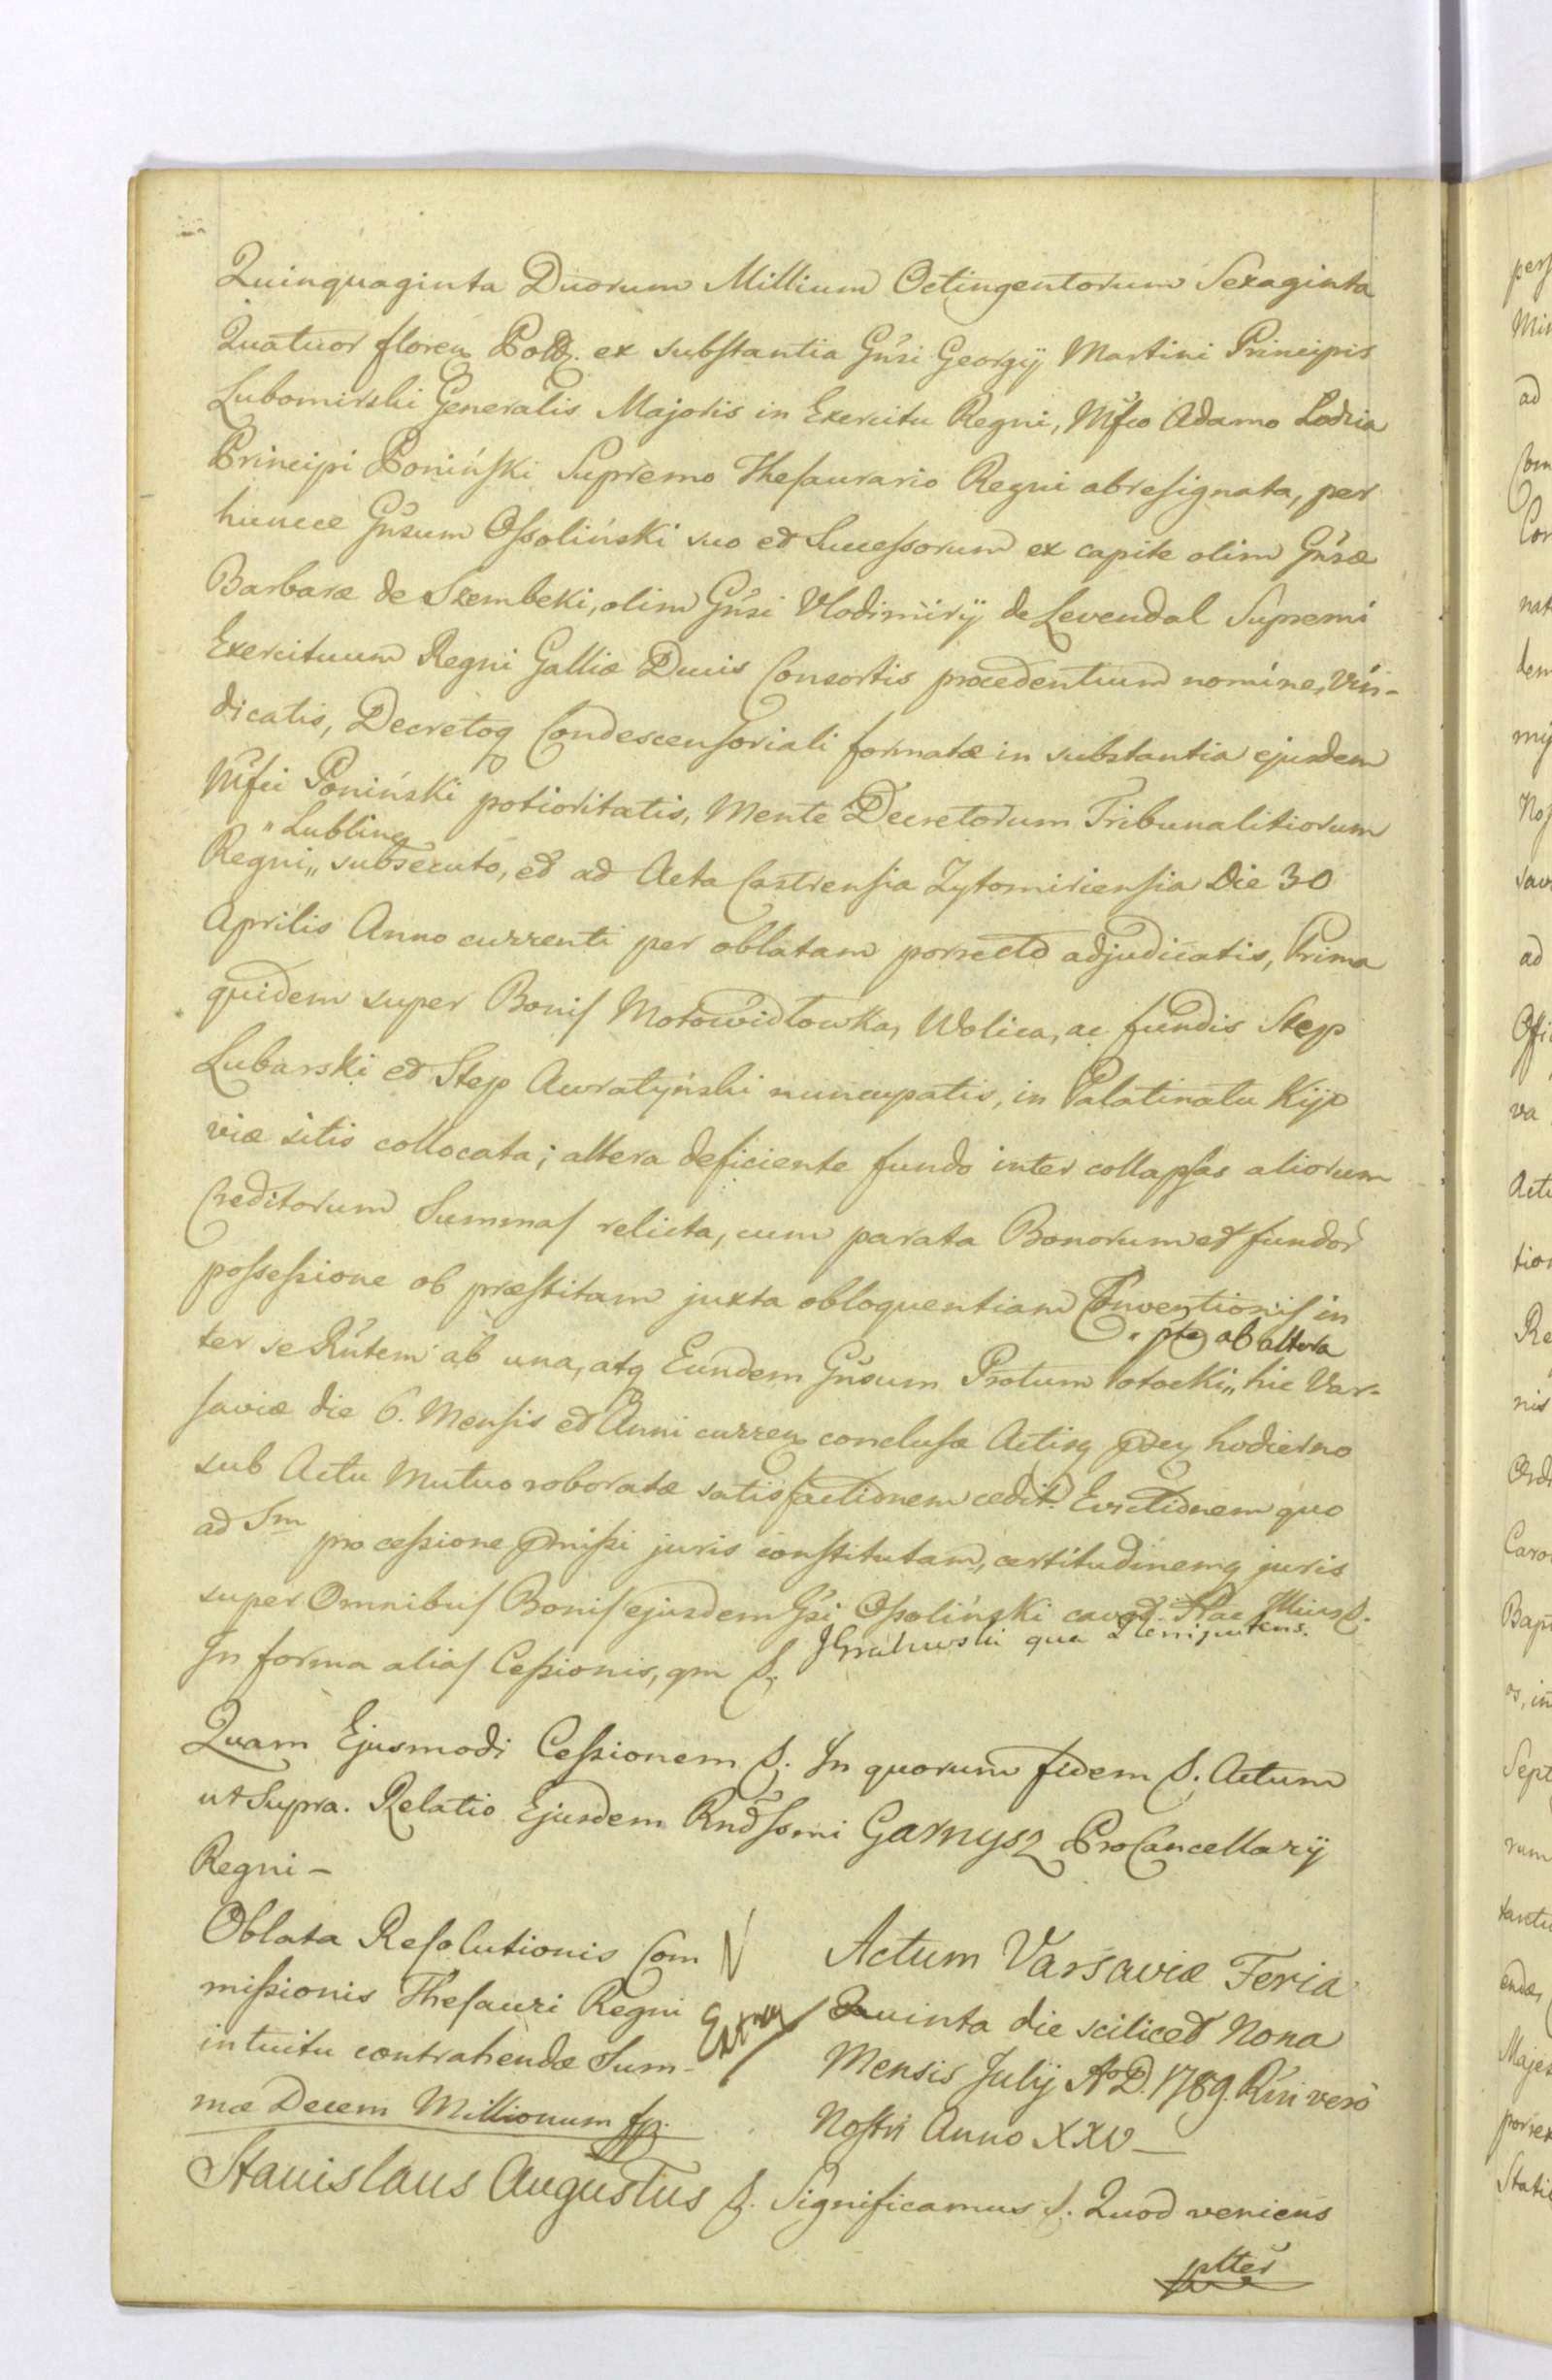 Quinquaginta Duorum Millium Octingentorum Sexaginta
Quatuor floren Poll. ex substantia Gn̄si Georgij Martini Principis
Lubomirski Generalis Majoris in Exercitu Regni, Mfco Adamo Lodzia
Principi Poniński Supremo Thesaurario Regni abresignata, per
huncce Gn̄sum Ossoliński suo et Successorum ex capite olim Gn̄sæ
Barbaræ de Szembeki, olim Gn̄si Vlodimirij de Levendal Supremi
Exercituum Regni Galliæ Ducis Consortis procedentium nomine, Vin-
dicatis, Decretoq Condescensoriali formatæ in substantia ejusdem
Mfci Poniński potioritatis, Mente Decretorum Tribunalitiorum
" Lublinen
Regni„ subsecuto, et ad Acta Castrensia Zytomiriensia Die 30
Aprilis Anno currenti per oblatam porrecto adjudicatis, Prima
quidem super Bonis Motowidłowka, Wolica, ac fundis Step
Lubarski et Step Awratyński nuncupatis, in Palatinatu Kijo
viæ sitis collocata; altera deficiente fundo inter collapsas aliorum
Creditorum Summas relicta, cum parata Bonorum et fundor
possessione ob præstitam juxta obloquentiam Conventionis in
" pte ab altera
ter se Rntem ab una, atq Eundem Gn̄sum Protum Potocki„ hic Var-
saviæ die 6. Mensis et Anni curren conclusæ Actisq pn̄en hodierno
sub Actu Mutuo roboratæ satisfactionem cedit. Evictionem quo
ad Sm pro cessione præmissi juris constitutam, certitudinemq juris
super Omnibus Bonis ejusdem Gsi Ossoliński caved. Hac Illius &.
In forma alias Cessionis, qm &. JGrabowski qua Plenipotens.
Quam Ejusmodi Cessionem &. In quorum fidem &. Actum
ut Supra. Relatio Ejusdem Rnd̄ssmi Garnysz ProCancellarij
Regni –
Oblata Resolutionis Com
missionis Thesauri Regni
intuitu contrahendæ Sum-
mæ Decem Millionum fp.
Extrad
Actum Varsaviæ Feria
Quinta die scilicet Nona
Mensis Julij A°D. 1789. Rni vero
Nostri Anno XXV –
Stanislaus Augustus &. Significamus &. Quod veniens
ptter